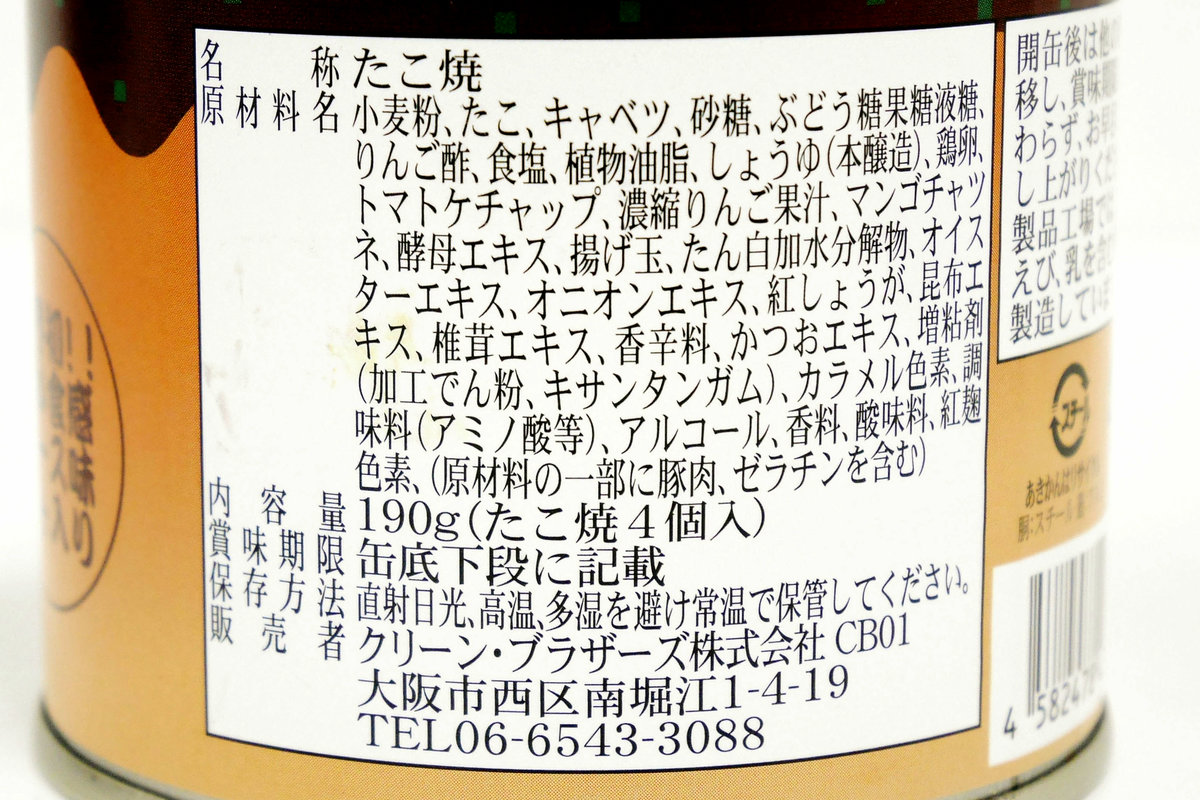 名称 たこ焼
原材料名 小麦粉、たこ、キャベツ、砂糖、ぶどう糖果糖液糖、
りんご酢、食塩、植物油脂、しょうゆ(本醸造)、鶏卵、
トマトケチャップ、濃縮りんご果汁、マンゴチャツ
ネ、酵母エキス、揚げ玉、たん白加水分解物、オイス
ターエキス、オニオンエキス、紅しょうが、昆布エ
キス、椎茸エキス、香辛料、かつおエキス、増粘剤
(加工でん粉、キサンタンガム)、カラメル色素、調
味料(アミノ酸等)、アルコール、香料、酸味料、紅麹
色素、(原材料の一部に豚肉、ゼラチンを含む)
内容量 190g(たこ焼4個入)
賞味期限 缶底下段に記載
保存方法 直射日光、高温、多湿を避け常温で保管してください。
販売者 クリーン・ブラザーズ株式会社 CB01
大阪市西区南堀江1-4-19
TEL06-6543-3088
開缶後は他の
移し、賞味期
わらず、お早
し上がりくだ
製品工場では
えび、乳を含
製造していま
スチール
あきかんはリサイ
胴:スチール
4 58247
!!
感
ス味
入り